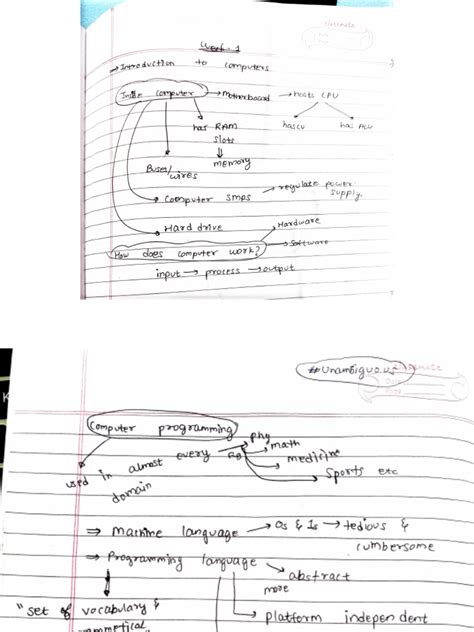 classmate
Week - 1
→ Introduction to computers
Inside computer → Motherboard → hosts CPU
has RAM has CU has ALU
slots
↓
Buses/ memory
wires
→ Computer smps → regulate power
supply.
→ Hard drive → Hardware
How does computer work? → Software
input → process → output
#Unambiguous classmate
Computer programming
used in almost every → phy
→ math
→ medicine
→ sports etc
domain
⇒ Machine language → 0s & 1s → tedious &
cumbersome
⇒ Programming language → abstract
more
"set of vocabulary & → platform independent